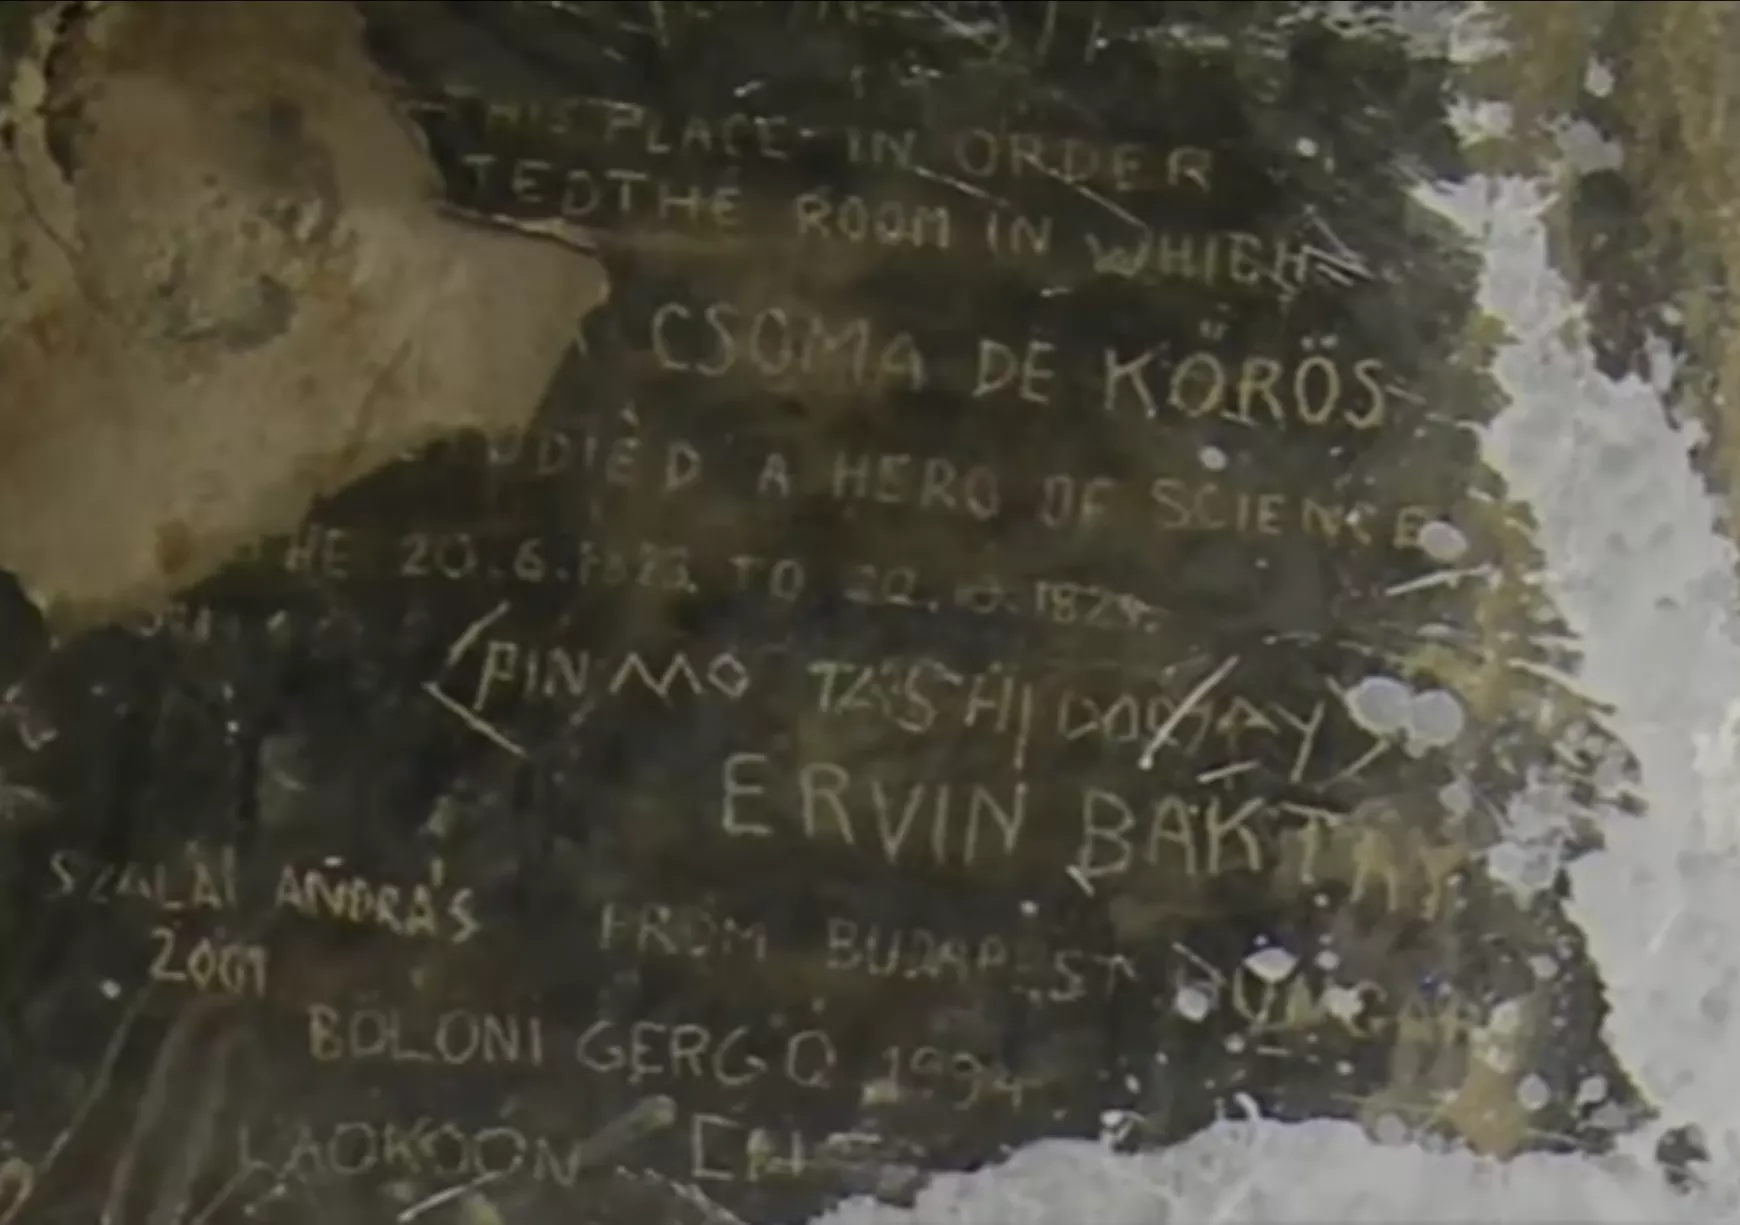 HIS PLACE IN ORDER
TED THE ROOM IN WHICH
CSOMA DE KÖRÖS
UDIED A HERO OF SCIENCE
HE 20.6.1823. TO 22.10.1824.
TASHI
ERVIN BAKTAY
SZALAI ANDRÁS
FROM BUDAPEST HUNGARY
2001
BÖLÖNI GERGŐ 1994
LAOKOON